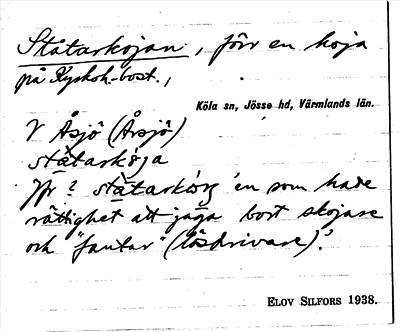 Ståtarkojan, förr en koja
på Kyrkoh.-bost.,
Köla sn, Jösse hd, Värmlands län.
V Åsjö (Årsjö)
ståtarkå̀ja
Jfr? ståtarkörg 'en som hade
rättighet att jaga bort skojare
och "fantar" (lösdrivare)'.
ELOV SILFORS 1938.